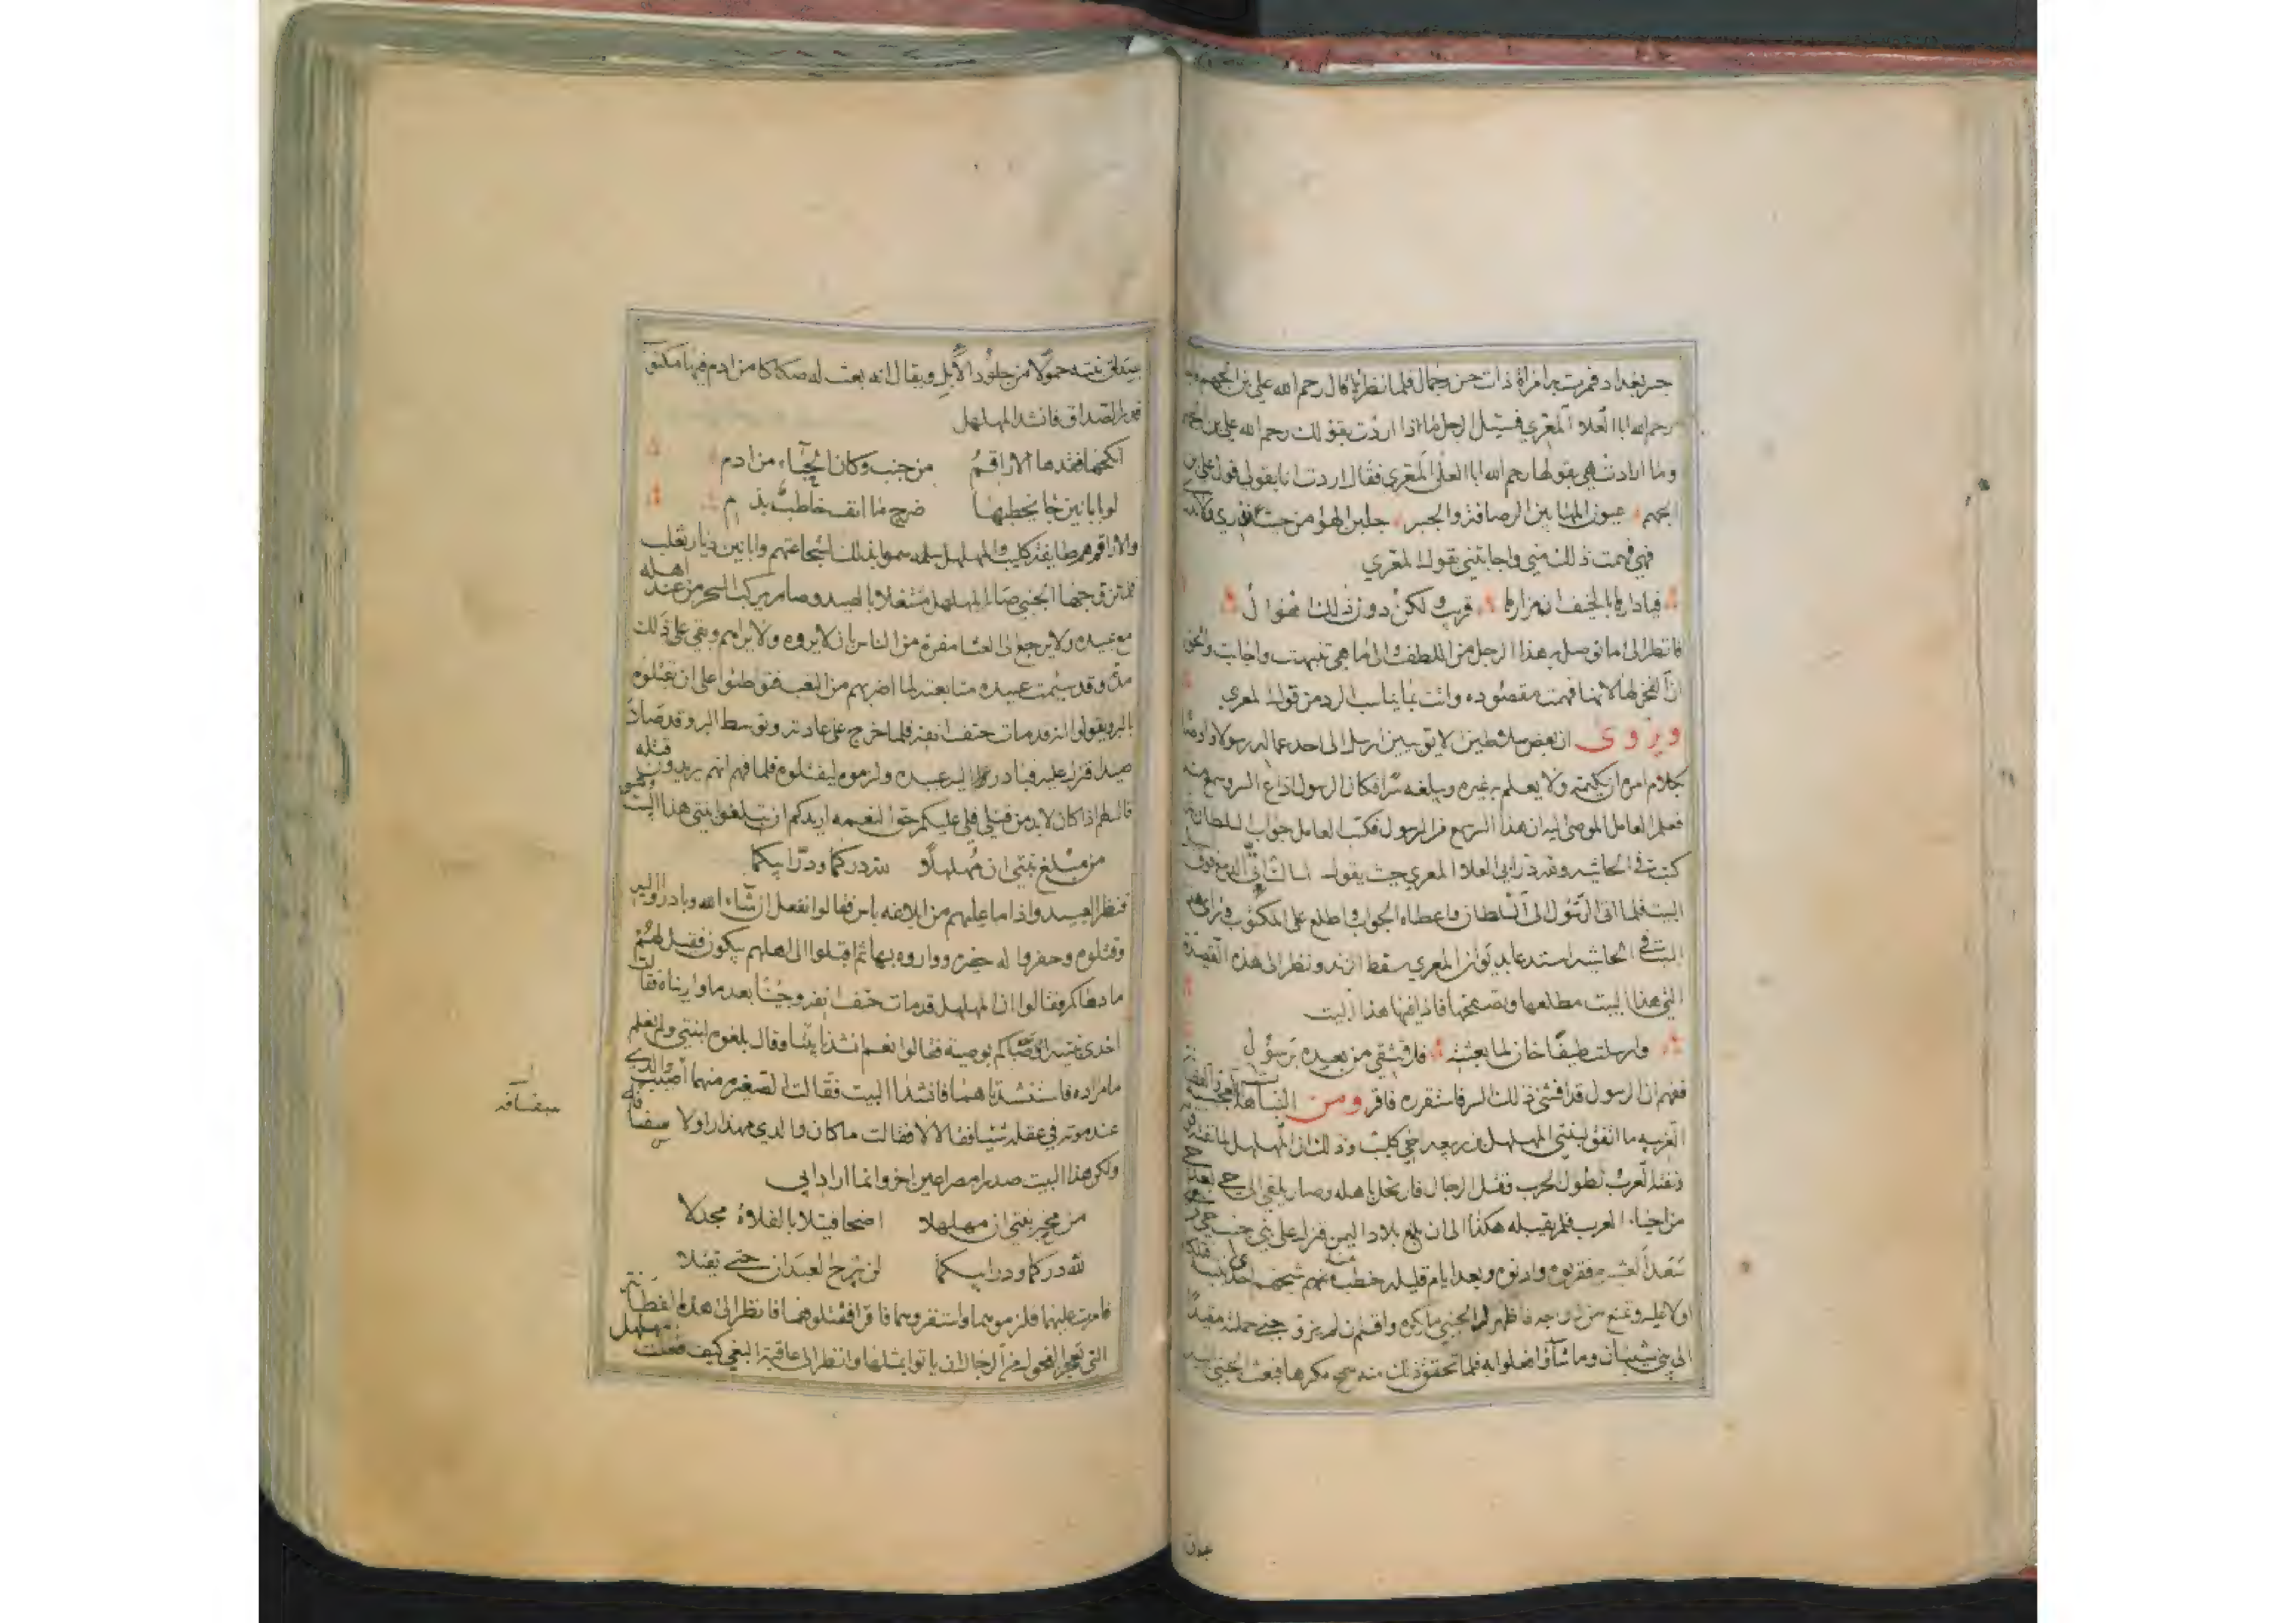 جسر بغداد فمرت به امراة ذات حسن وجمال فلما نظرها قال رحم الله علي بن الجهم
رحم الله ابا العلاء المعري فسئل الرجل ماذا اردت بقولك رحم الله علي بن الجهم
وما ارادت هي بقولها رحم الله ابا العلى المعري فقال اردت انا بقولي قول علي بن
الجهم عيون المها بين الرصافة والجسر جلبن الهوى من حيث ندري ولا
فهي فهمت ذلك مني واجابتني بقول المعري
فيا دارها بالخيف ان مزارها قريب ولكن دون ذلك اهوال
فانظر الى ما توصل به هذا الرجل من اللطف والى ما هي تنبهت واجابت والحق
ان الفخر لها لانها فهمت مقصوده واتت بما يناسب الرد من قول المعري
ويروى ان بعض سلاطين ارسل الى احد عماله رسولا
بكلام امره ان يكتمه ولا يعلم به غيره ويبلغه سرا فكان الرسول اذاع السر وسمع منه
فعلم العامل الموصى اليه ان هذا السر من الرسول فكتب العامل جواب السلطان
كتب في الحاشية وقد در ابي العلا المعري حيث يقول
البيت فلما اتى الرسول الى السلطان واعطاه الجواب واطلع على المكتوب فراى هذا
البيت في الحاشية استدعا بديوان المعري سقط الزند ونظر الى هذه القصيدة
التي هذا البيت مطلعها وتصفحها فاذا فيها هذا البيت
وارسلت طيفا خان لما بعثته فلا تثقي من بعيده برسول
ففهم ان الرسول قد افشى ذلك السر فاستقرره فاقر ومن النباهة العجيبة
الغريبه ما اتفق لبنتي المهلهل بن ربيعه اخي كليب وذلك ان المهلهل لما
العرب لطول الحرب وقتل الرجال فارتحل باهله وصار يلقي الى حي
من احياء العرب فلم يقبله هكذا الى ان بلغ بلاد اليمن فنزل على بني جنب حي من
سعد العشيرة فقربوه وادنوه وبعد ايام قليله خطب منه شيخهم احدى بنيه فلكا
اولا عليه وتمنع من زواجه فاظهر له الجنبي ما يكره واقسم ان لم يزوجني حملته مقيدا
الى بني شيبان وما شاؤا فعلوا به فلما تحقق ذلك منه سمح مكرها فبعث الجنبي
صداق
بصداق بنته حمولا من جلود الابل ويقال انه بعث له صكاكا من ادم فيها مكتوب
قدر الصداق فانشد المهلهل
انكحها فقدها الاراقم من جنب وكان الحباء من ادم
لو بابانين جا يخطبها ضرج ما انف خاطب بدم
والاراقم هم طايفة كليب والمهلهل سموا بذلك لشجاعتهم وابانين ديار تغلب
فلما تزوجها الجنبي صار المهلهل مشتغلا بالصيد وصار يركب السحر من عند اهله
مع عبيده ولا يرجع الى العشا مفرة من الناس بان لا يروه ولا يراهم وبقي على ذلك
مدة وقد سئمت عبيده متابعته لما اضر بهم من التعب فتوطئوا على ان يقتلوه
بالبر ويقولوا انه قد مات حتف انفه فلما خرج على عادته وتوسط البر وقد صاد
صيدا نزل عليه فبادر اليه عبيده ولزموه ليقتلوه فلما فهم انهم يريدون قتله
قال لهم اذا كان لا بد من قتلي فلي عليكم حق النعمه اريدكم ان تبلغوا بنتي هذا البيت وهو
من مبلغ بنتي ان مهلهلا لله دركما ودر ابيكما
فنظر العبيد واذا ما عليهم من ابلاغه باس فقالوا نفعل ان شاء الله وبادروا اليه
وقتلوه وحفروا له حفره وواروه بها ثم اقبلوا الى اهلهم يبكون فقيل لهم
ما دهاكم فقالوا ان المهلهل قد مات حتف انفه وجئنا بعد ما واريناه فقالت
احدى بنتيه اوصاكم بوصية فقالوا نعم انشدنا بيتا وقال بلغوه ابنتي ولم نعلم
ما مراده فاستنشدتاهما فانشدا البيت فقالت الصغيره منهما اصيب والدي
عند موته في عقله شئ فقالا لا فقالت ما كان والدي مهذارا ولا سفسا فه
ولكن هذا البيت صدرا مصراعين اخر وانما اراد ابي
من مخبر بنتي ان مهلهلا اضحا قتيلا بالفلاة مجدلا
لله دركما ودر ابيكما لن يبرح العبدان حتى يقتلا
فامرت عليهما فلزموهما واستقروهما فاقرا فقتلوهما فانظر الى هذه الفطانة
التي تعجز الفحول من الرجال ان ياتوا بمثلها وانظر الى عاقبة البغي كيف فعلت بمهلهل
سفسافه